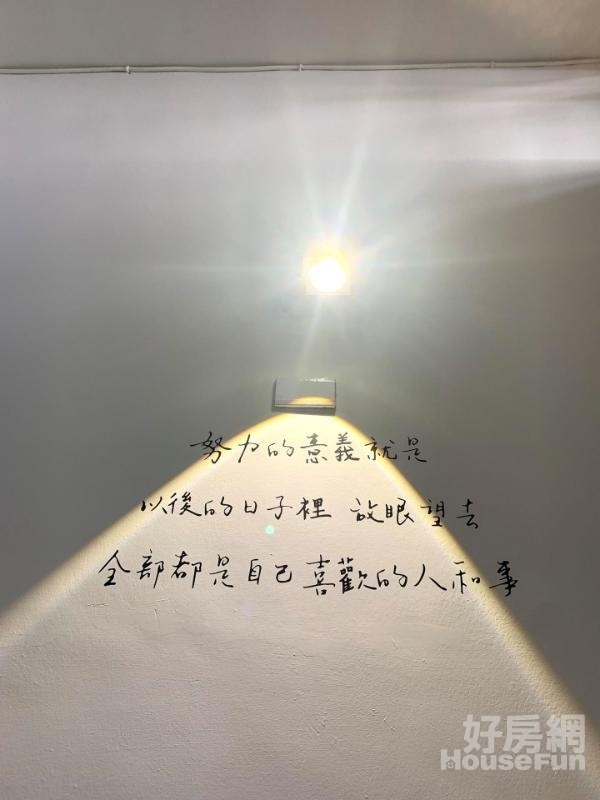 努力的意義就是
以後的日子裡 放眼望去
全部都是自己喜歡的人和事
好房網
HouseFun